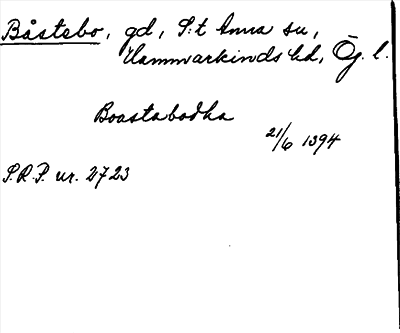 Båstebo, gd, S:t Anna sn,
Hammarkinds hd, Ög. l.
Boastabodha
21/6 1394
S.R.P. nr. 2723